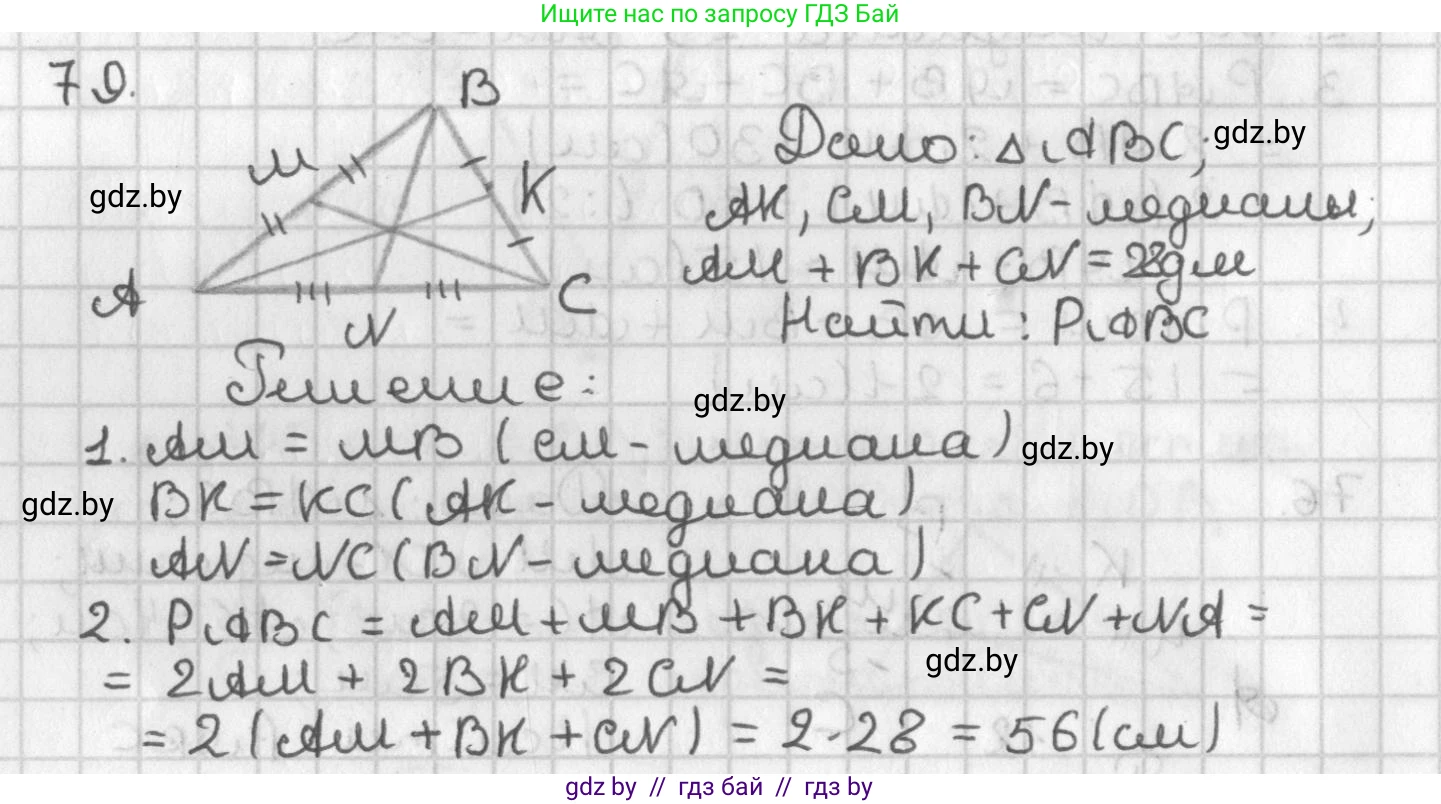 Ищите нас по запросу ГДЗ Бай
79.
B
M
K
A
C
N
gdz.by
Дано: △ABC; gdz.by
AK, CM, BN - медианы;
AM + BK + CN = 28дм
Найти: PABC
Решение:
gdz.by
1. AM = MB (CM - медиана) gdz.by
gdz.by BK = KC (AK - медиана)
AN = NC (BN - медиана)
2. PABC = AM + MB + BK + KC + CN + NA =
= 2AM + 2BK + 2CN = gdz.by
= 2 (AM + BK + CN) = 2·28 = 56 (см)
gdz.by // гдз бай // гдз by